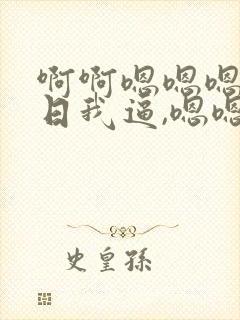 啊啊嗯嗯嗯
日我逼,嗯嗯
史皇孙